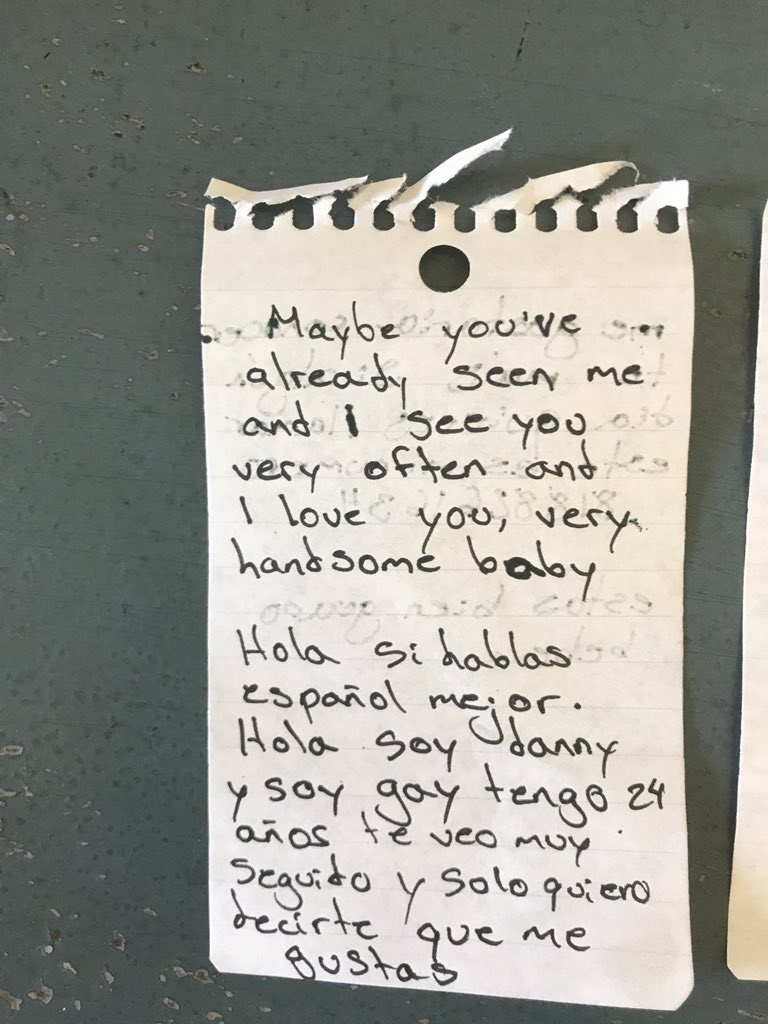 Maybe you've
already seen me
and I see you
very often and
I love you, very
handsome baby
Hola si hablas
español mejor.
Hola soy danny
y soy gay tengo 24
años te veo muy
seguido y solo quiero
decirte que me
gustas